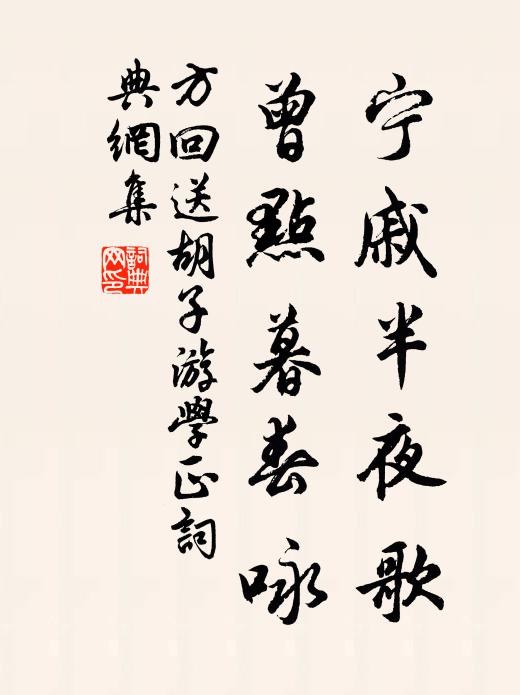 宁戚半夜歌
曾點暮春咏
方回送胡子游學正詞
典網集
詞典
网印